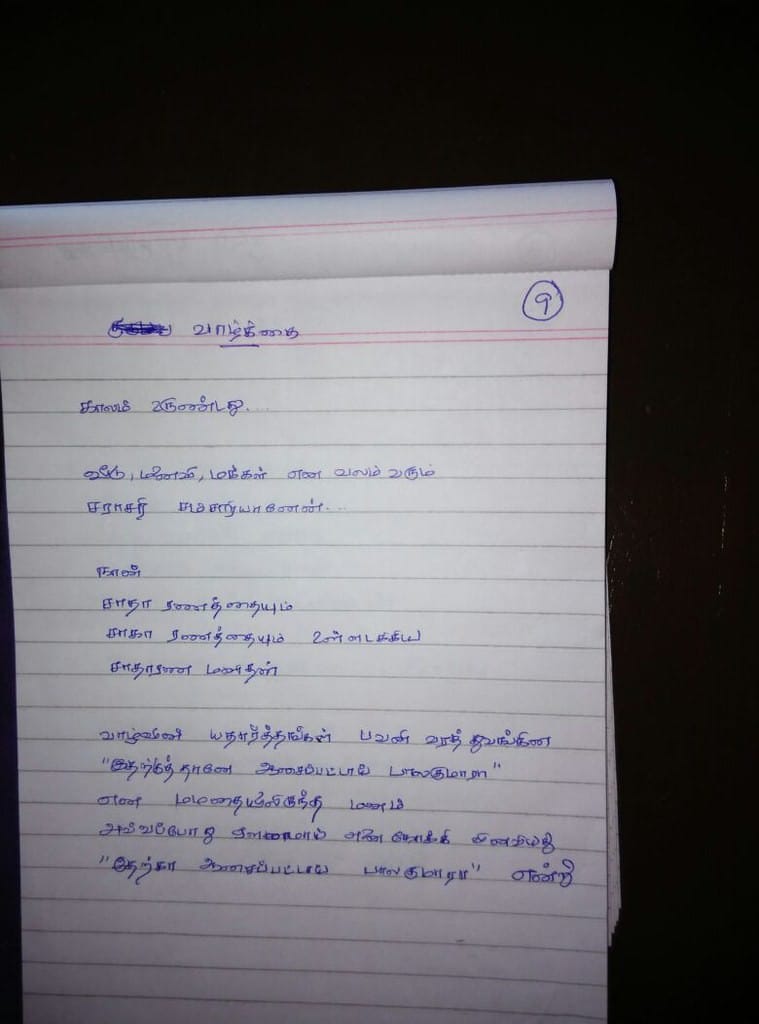 9
வாழ்க்கை
காலம் உருண்டது....
வீடு, மனைவி, மக்கள் என வலம் வரும்
சராசரி சம்சாரியானேன்...
நான்
சாதா ரணத்தையும்
சாகா ரணத்தையும் உள்ளடக்கிய
சாதாரண மனிதன்
வாழ்வின் யதார்த்தங்கள் பவனி வரத் துவங்கின
"இதற்குத்தானே ஆசைப்பட்டாய் பாலகுமாரா"
என மமதையிலிருந்த மனம்
அவ்வப்போது ஏளனமாய் எனை நோக்கி வினவியது
"இதற்கா ஆசைப்பட்டாய் பாலகுமாரா" என்று